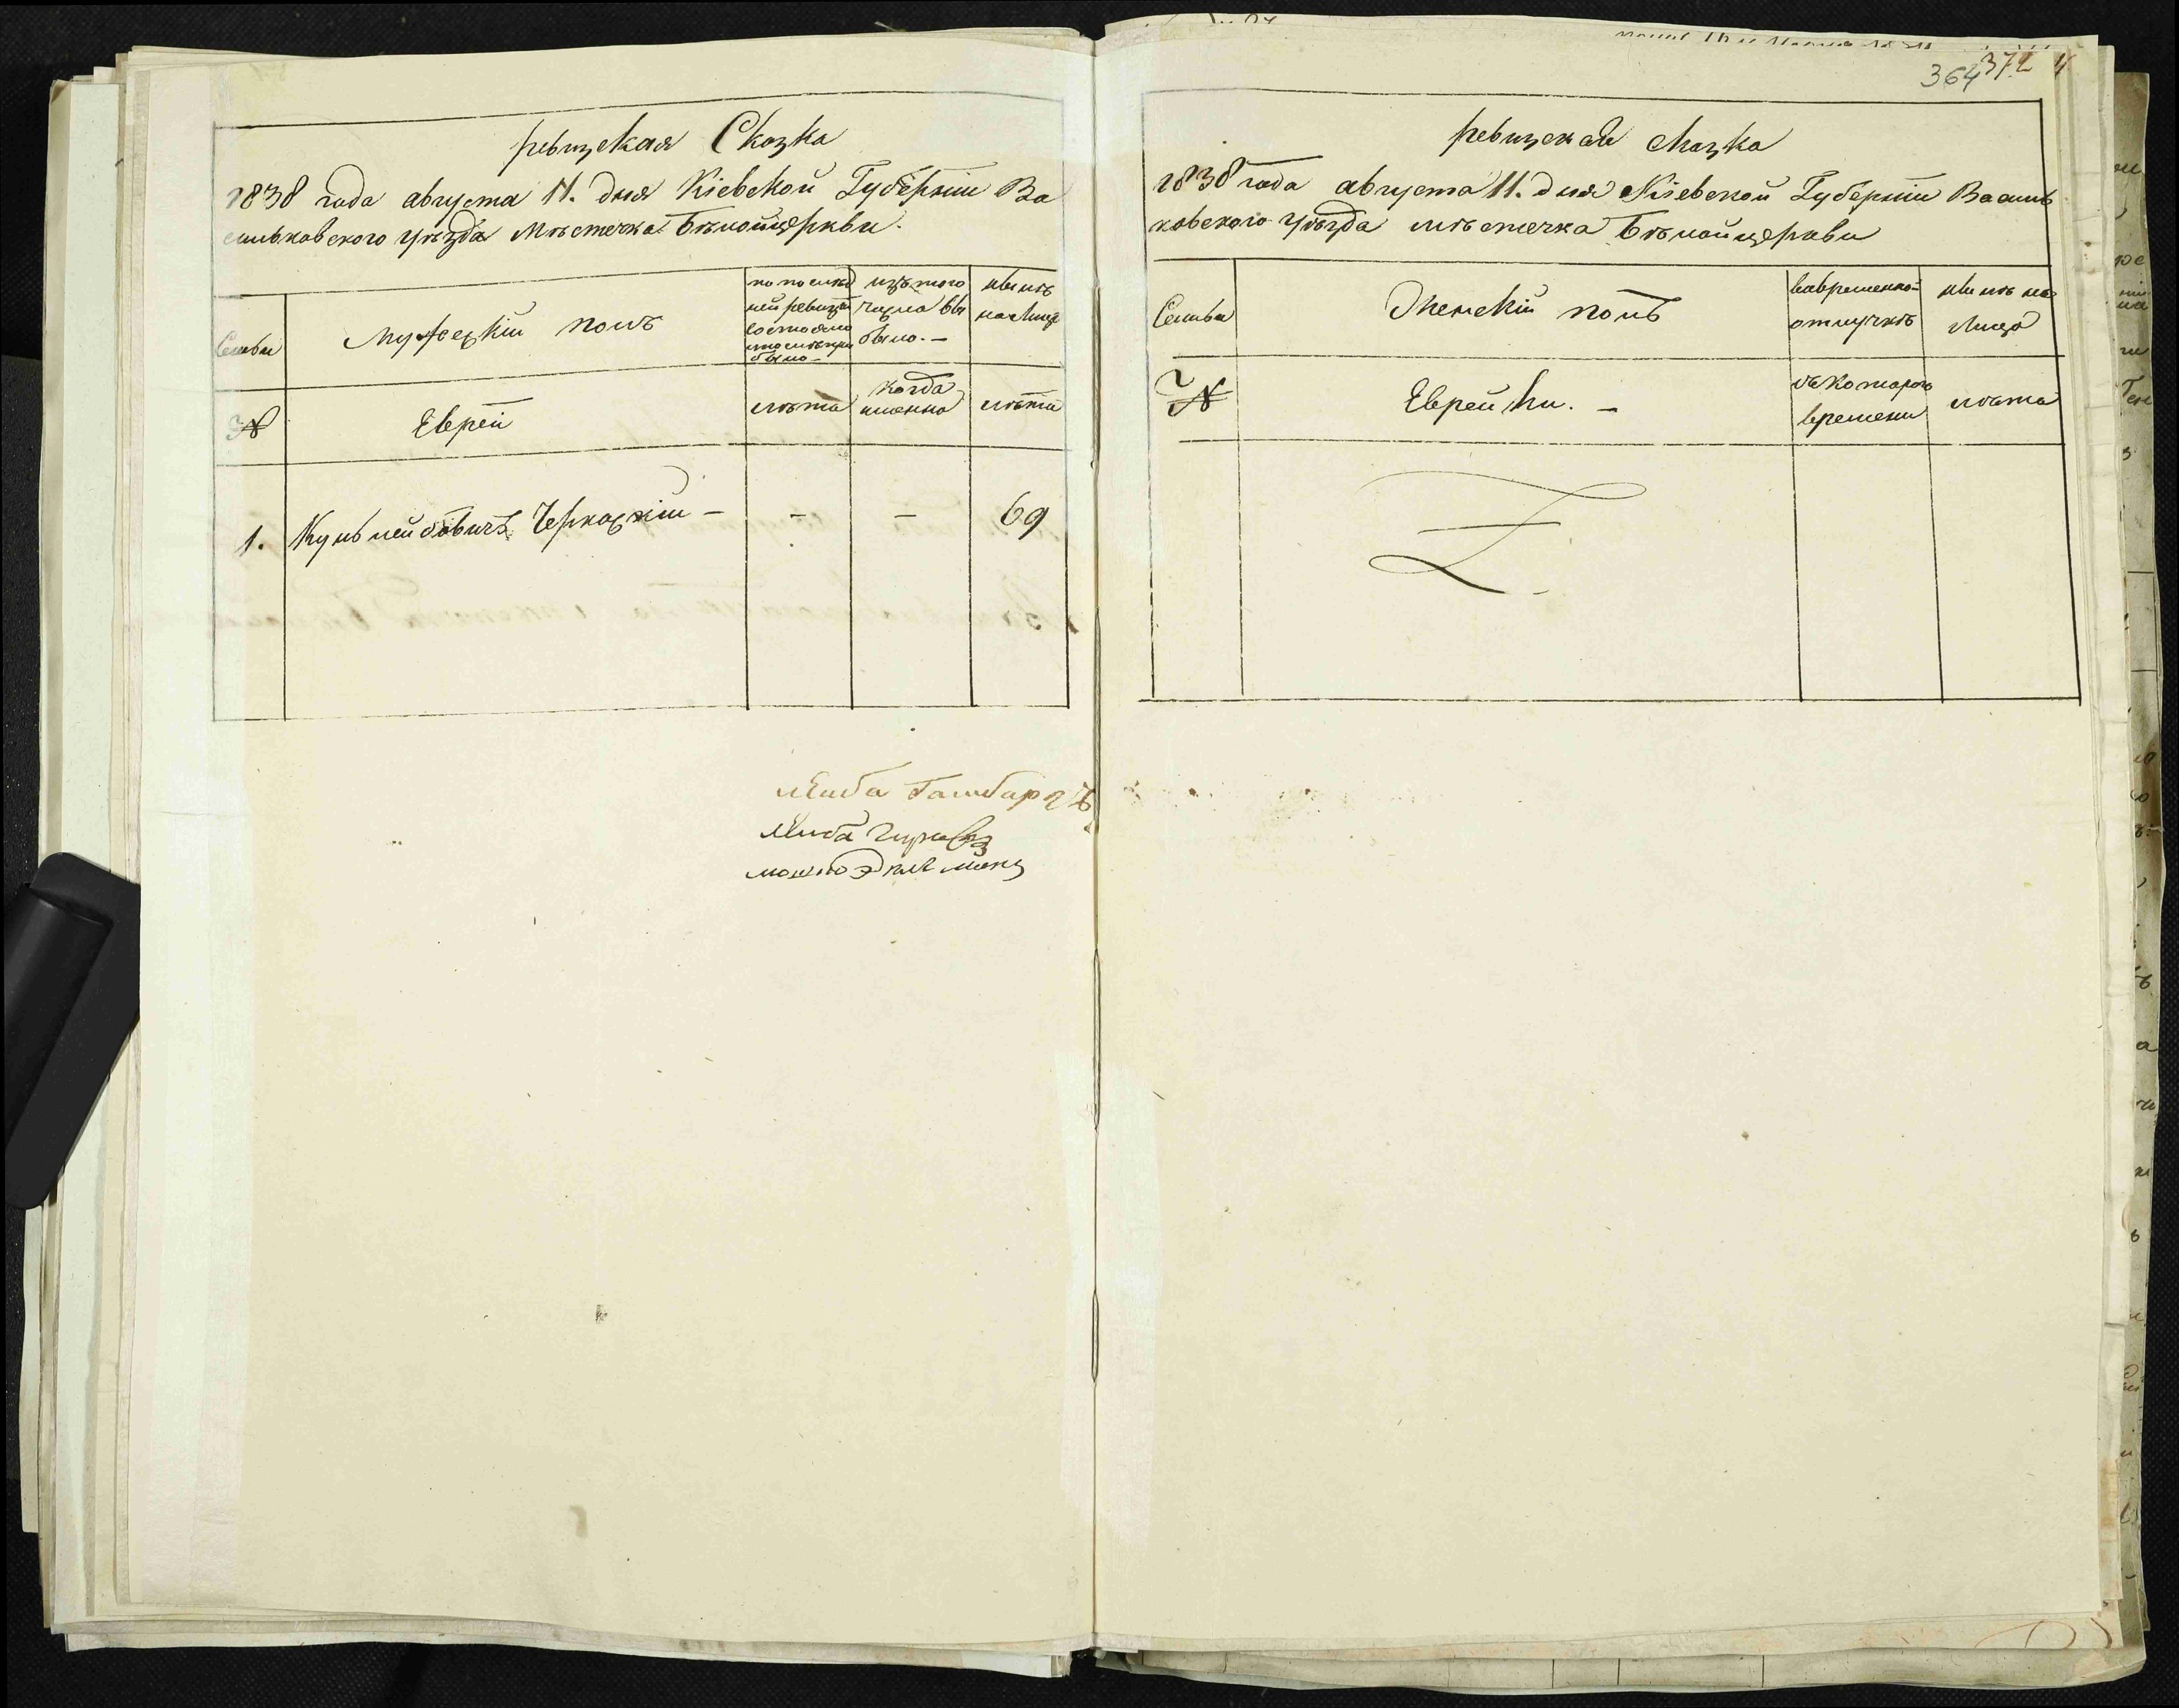 ревизская Сказка
1838 года августа 11. дня Кіевской Губерніи Ва
сильковского уѣзда Мѣстечка Бѣлойцеркви.
Семьи
Мужескій полъ
по послѣд
ней ревизіи
состояло
было
изъ того
числа вы
было.
нынѣ
на лице
№
Еврей
лѣта
когда
именно
лѣта
1.
Черкаский
-
-
-
69
Лейба
Лейба
Мошко
364 372
ревизская сказка
1838 года августа 11. дня Кіевской Губерніи Василь
ковского уѣзда мѣстечка Бѣлойцеркви
Семьи
Женскій полъ
вовременной
отлучкѣ
нынѣ на
лицо
№
Еврейки. -
съ котораго
времени
лѣта